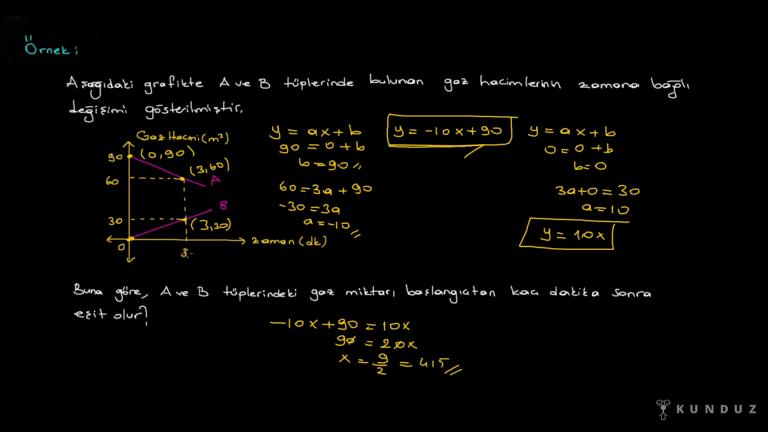 Örnek:
Aşağıdaki grafikte A ve B tüplerinde bulunan gaz hacimlerinin zamana bağlı
değişimi gösterilmiştir.
Gaz Hacmi (m³)
90
(0,90)
(3,60)
60
A
B
30
(3,30)
0
3
zaman (dk)
y = ax + b
90 = 0 + b
b = 90
60 = 3a + 90
-30 = 3a
a = -10
y = -10x + 90
y = ax + b
0 = 0 + b
b = 0
3a + 0 = 30
a = 10
y = 10x
Buna göre, A ve B tüplerindeki gaz miktarı başlangıçtan kaç dakika sonra
eşit olur?
-10x + 90 = 10x
90 = 20x
x = 9/2 = 4,5
KUNDUZ